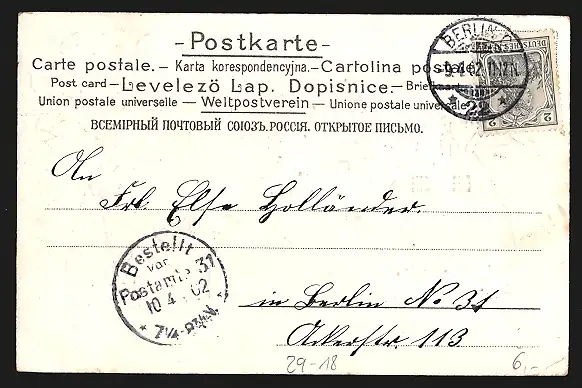 -Postkarte-
Carte postale. – Karta korespondencyjna. – Cartolina postale
Post card – Levelező Lap. Dopisnice. – Briefkaart
Union postale universelle – Weltpostverein – Unione postale universale
ВСЕМІРНЫЙ ПОЧТОВЫЙ СОЮЗЪ. РОССІЯ. ОТКРЫТОЕ ПИСЬМО.
BERLIN C
-9.4.02.11-12N.
* 22 *
DEUTSCHES REICH
2 2
An
Frl. Else Holländer.
Bestellt
vom
Postamte 31
10 4 02
* 7¼-8¾V. *
in Berlin No. 31
Ackerstr. 113
29-18
6,-